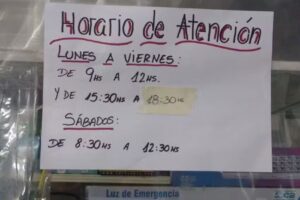 Horario de Atención
LUNES A VIERNES:
DE 9HS A 12HS.
Y DE 15:30HS A 18:30HS
SÁBADOS:
DE 8:30HS A 12:30HS
Luz de Emergencia